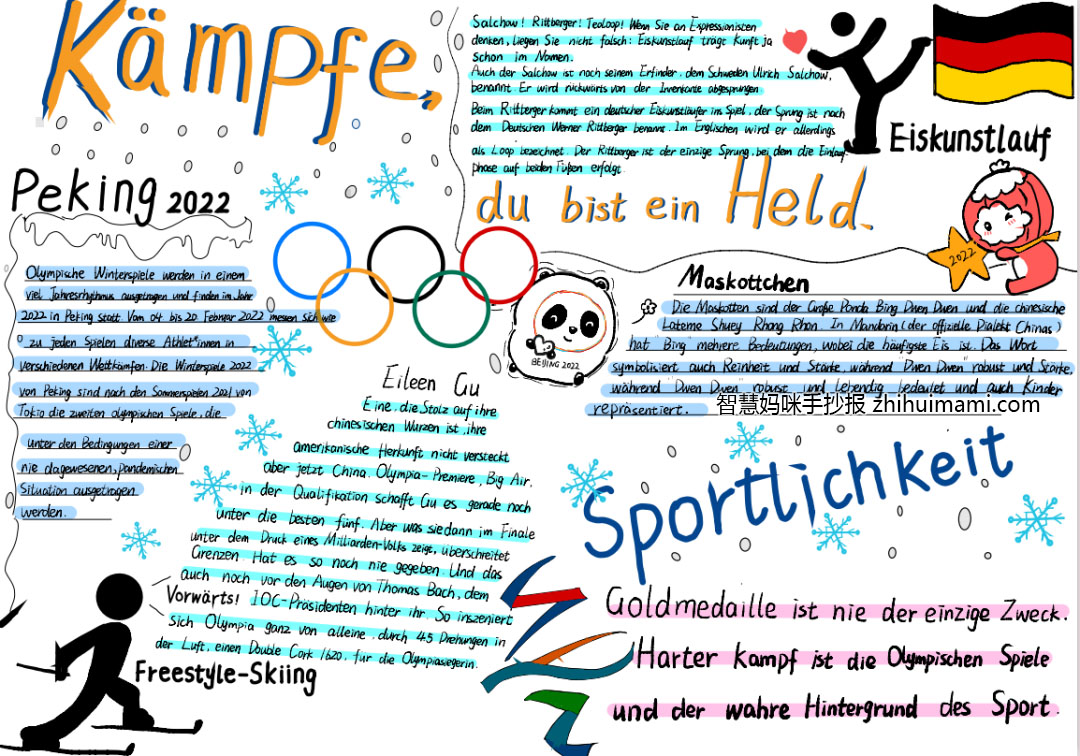 Kämpfe,
Salchow! Rittberger! Teoloop! Wenn Sie an Expressionisten
denken, liegen Sie nicht falsch: Eiskunstlauf trägt Kunft ja
schon im Nomen.
Auch der Salchow ist nach seinem Erfinder, dem Schweden Ulrich Salchow,
benannt. Er wird rückwärts von der Innenkante abgesprungen
Beim Rittberger kommt ein deutscher Eiskunstläufer im Spiel, der Sprung ist nach
dem Deutschen Werner Rittberger benannt. Im Englischen wird er allerdings
als Loop bezeichnet. Der Rittberger ist der einzige Sprung, bei dem die Einlauf-
phase auf beiden Füßen erfolgt
Eiskunstlauf
du bist ein Held.
Peking 2022
Olympische Winterspiele werden in einem
viel Jahresrhythmus ausgetragen und finden im Jahr
2022 in Peking statt. Vom 04. bis 20. Februar 2022 messen sich wie
zu jeden Spielen diverse Athlet*innen in
verschiedenen Wettkämfen. Die Winterspiele 2022
von Peking sind nach den Sommerspielen 2021 von
Tokio die zweiten olympischen Spiele, die
unter den Bedingungen einer
nie dagewesenen, pandemischen
Situation ausgetragen
werden.
2022
Maskottchen
Die Maskotten sind der Große Panda Bing Dwen Dwen und die chinesische
Laterne Shuey Rhong Rhon. In Mandarin (der offizielle Dialekt Chinas)
hat Bing mehrere Bedeutungen, wobei die häufigste Eis ist. Das Wort
symbolisiert auch Reinheit und Stärke, während "Dwen Dwen" robust und Stärke,
während "Dwen Dwen" robust und lebendig bedeutet und auch Kinder
repräsentiert.
智慧妈咪手抄报 zhihuimami.com
BEIJING 2022
Eileen Gu
Eine, die Stolz auf ihre
chinesischen Wurzen ist, ihre
amerikanische Herkunft nicht versteckt
aber jetzt China. Olympia-Premiere, Big Air.
in der Qualifikation schafft Gu es gerade noch
unter die besten fünf. Aber was sie dann im Finale
unter dem Druck eines Milliarden-Volks zeigt, überschreitet
Grenzen. Hat es so noch nie gegeben. Und das
auch noch vor den Augen von Thomas Bach, dem
IOC-Präsidenten hinter ihr. So inszeniert
sich Olympia ganz von alleine. durch 4,5 Drehungen in
der Luft, einen Double Cork 1620, für die Olympiasiegerin.
Vorwärts!
Freestyle-Skiing
Sportlichkeit
Goldmedaille ist nie der einzige Zweck.
Harter Kampf ist die Olympischen Spiele
und der wahre Hintergrund des Sport.